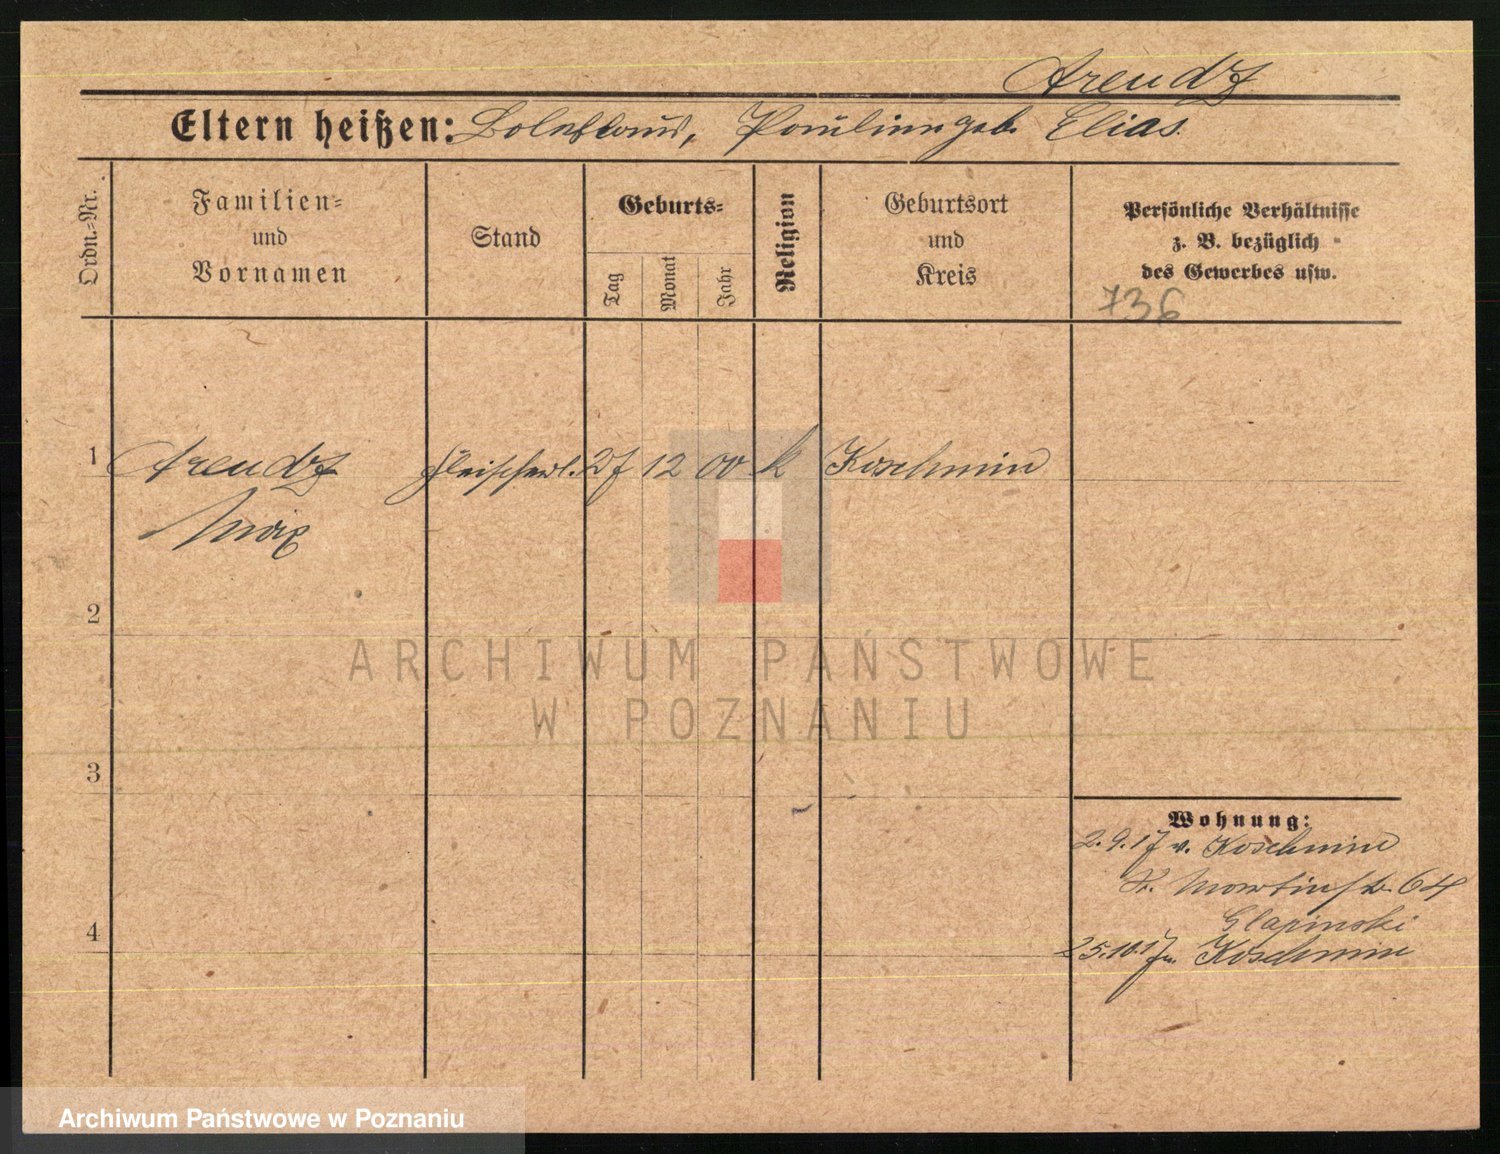 Arendz
Eltern heißen: Boleslaus, Pauline geb. Elias.
Ordn.-Nr.
Familien- und Vornamen
Stand
Geburts-
Tag
Monat
Jahr
Religion
Geburtsort und Kreis
Persönliche Verhältnisse
z. B. bezüglich
des Gewerbes usw.
736
1 Arendz Fleischerl. 27 12 00 k Koschmin
Max
2
ARCHIWUM PAŃSTWOWE
W POZNANIU
3
Wohnung:
2.9.17 v. Koschmin
St. Martinstr. 64
Glapinski
4
25.10.17 n. Koschmin
Archiwum Państwowe w Poznaniu